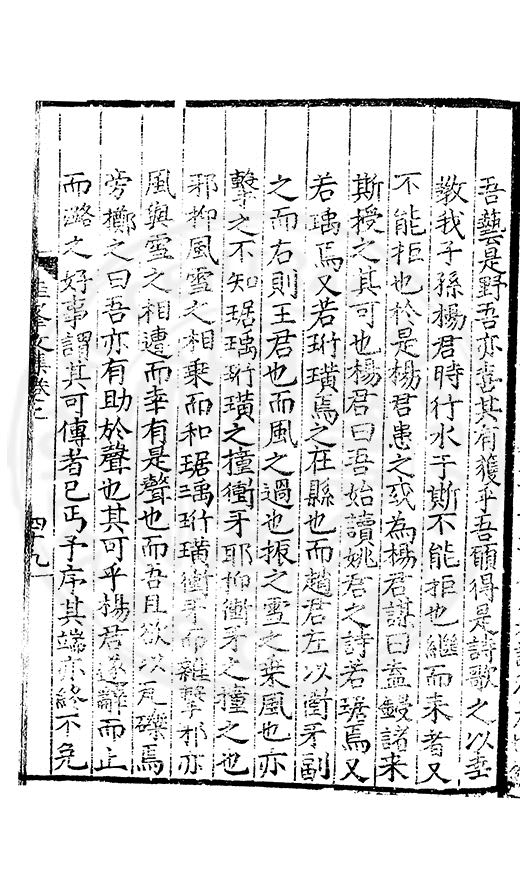 吾藝是野吾亦喜其有獲乎吾願得是詩歌之以
教我子孫楊君時行水于斯不能拒也繼而来者又
不能拒也於是楊君患之或為楊君謀曰盍鋟諸来
斯授之其可也楊君曰吾始讀姚君之詩若琚焉又
若瑀焉又若珩璜焉之在縣也而趙君左以衝牙副
之而右則王君也而風之過也振之雪之乗風也亦
擊之不知琚瑀珩璜之撞衝牙耶抑衝牙之撞之也
邪抑風雪之相乗而和琚瑀珩璜衝牙而雜擊邪亦
風與雪之相遭而幸有是聲也而吾且欲以瓦礫焉
旁擲之曰吾亦有助於聲也其可乎楊君遂辭而止
而潞之好事謂其可傳者已丐予序其端亦終不免
圭峯文集卷三
四十九